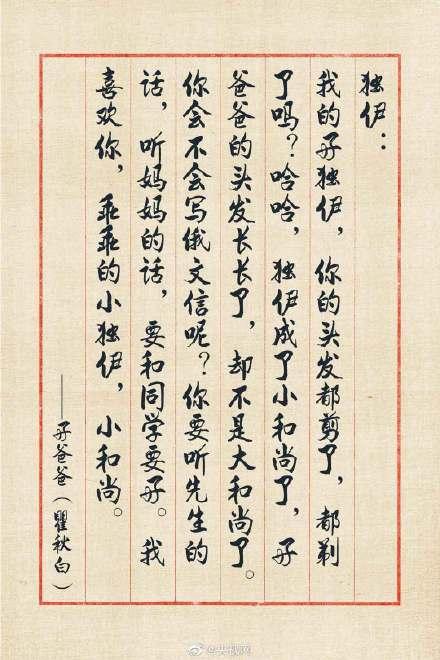 独伊：
我的好独伊，你的头发都剪了，都剃
了吗？哈哈，独伊成了小和尚了，好
爸爸的头发长长了，却不是大和尚了。
你会不会写俄文信呢？你要听先生的
话，听妈妈的话，要和同学要好。我
喜欢你，乖乖的小独伊，小和尚。
——好爸爸（瞿秋白）
@央视网